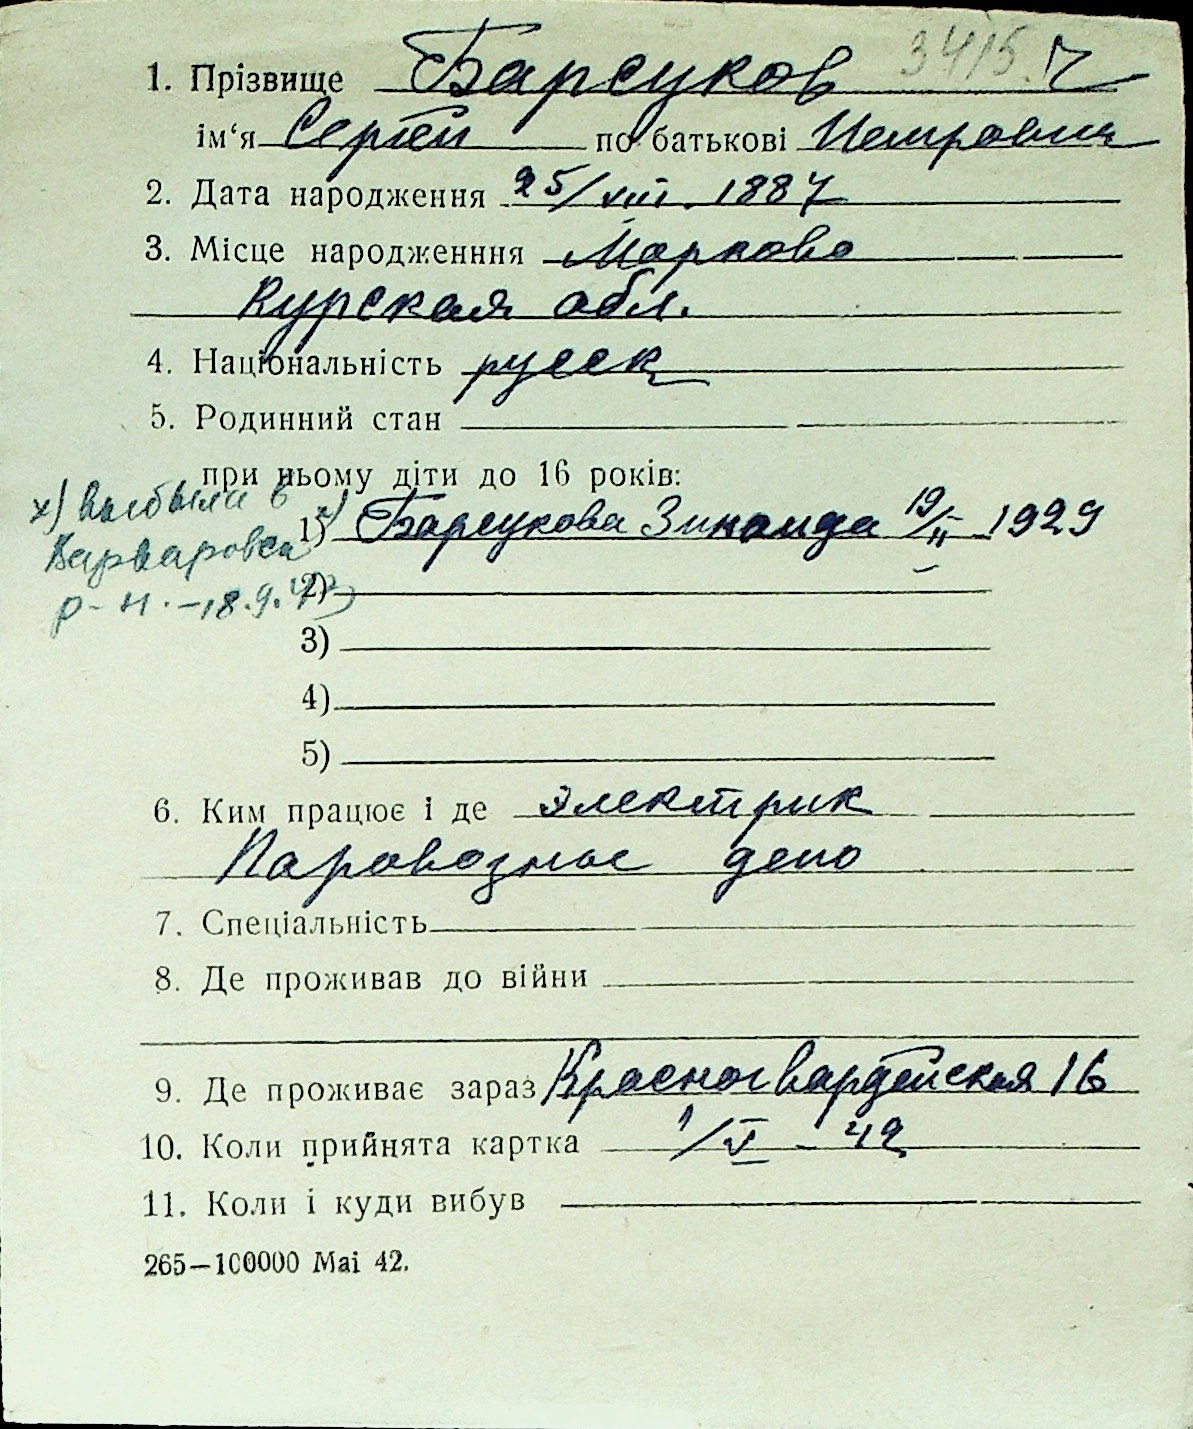 3415. Г
1. Прізвище Барсуков
ім‘я Сергей по батькові Петрович
2. Дата народження 25/VIII. 1887
3. Місце народженння Марково
Курская обл.
4. Національність русск
5. Родинний стан
при ньому діти до 16 років:
х) выбыли в
1) х) Барсукова Зинаида 19/II 1929
Варваровск
2)
р-н. -18.9.42)
3)
4)
5)
6. Ким працює і де электрик
Паровозное депо
7. Спеціальність
8. Де проживав до війни
9. Де проживає зараз Красногвардейская 16
10. Коли прийнята картка 1/V - 42
11. Коли і куди вибув
265—100000 Mai 42.